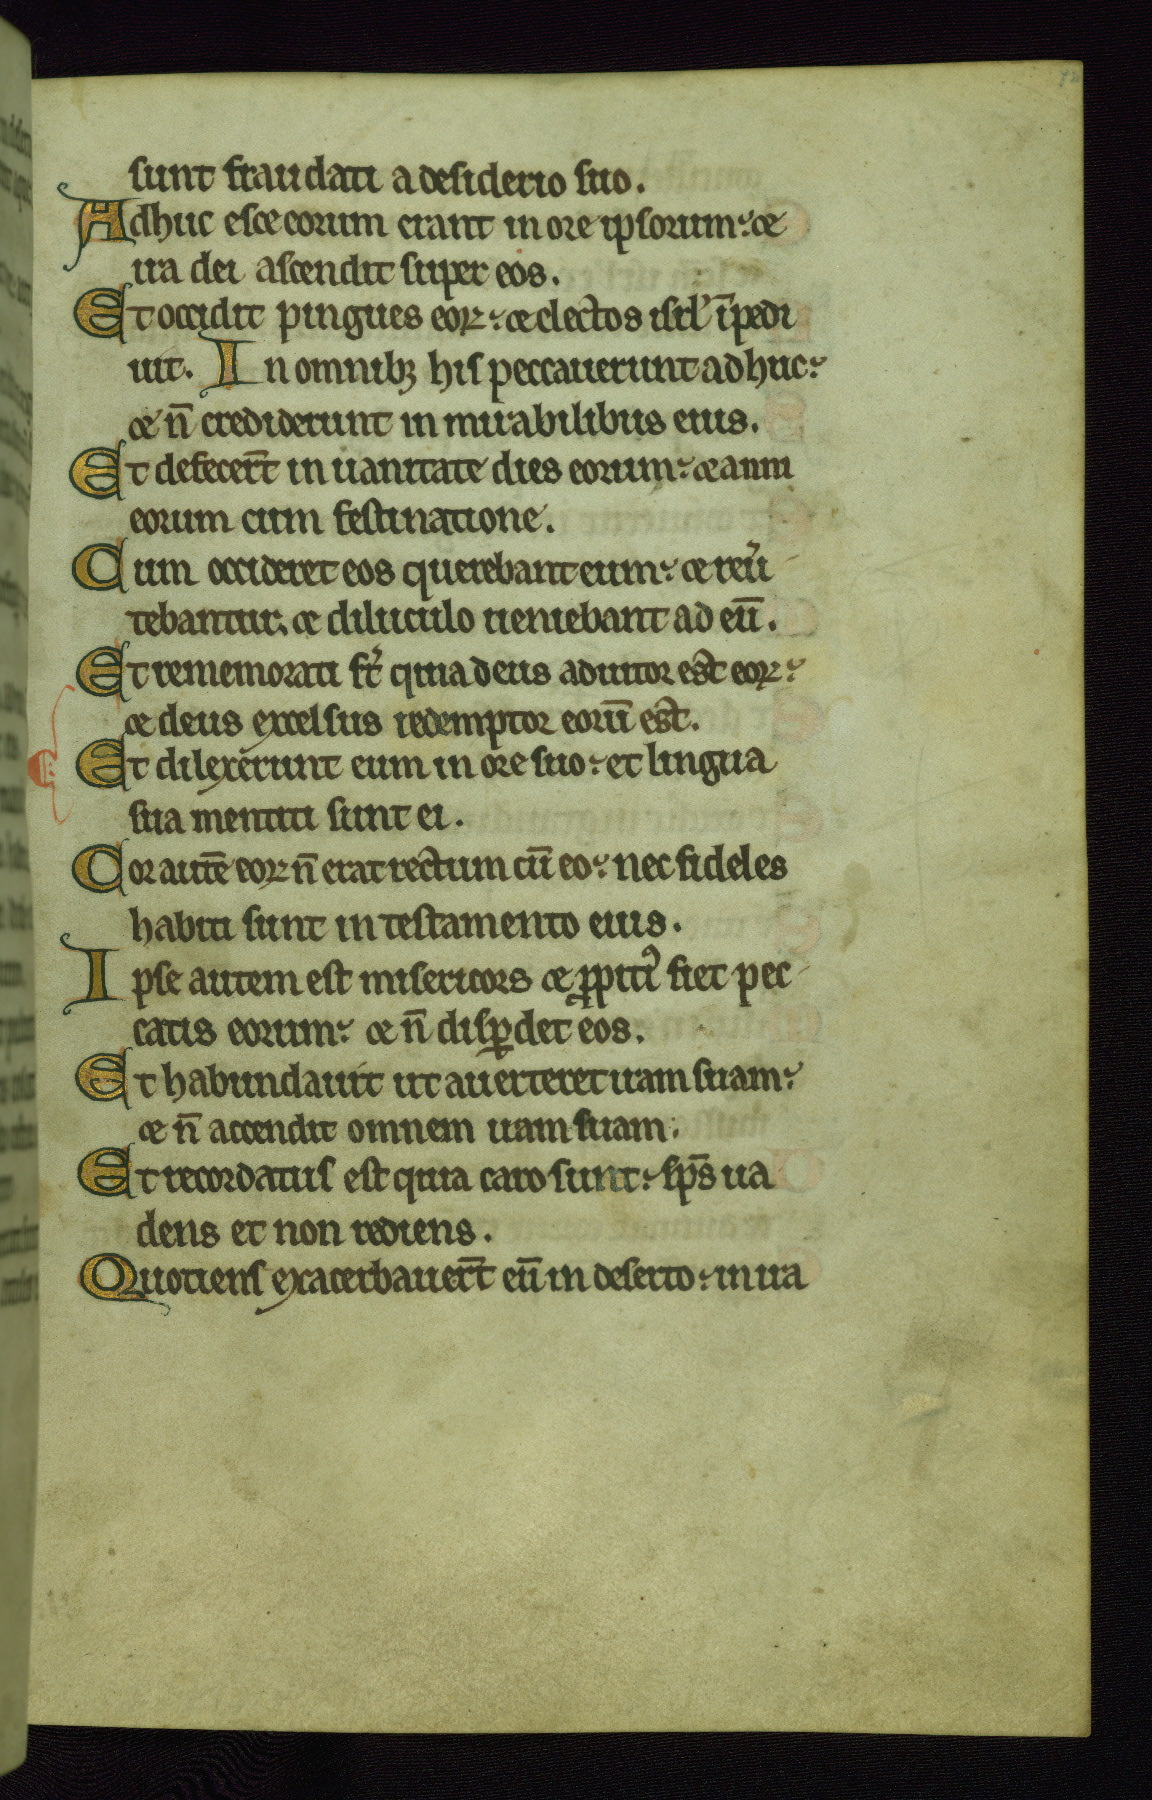 sunt fraudati a desiderio suo.
Adhuc esce eorum erant in ore ipsorum: et
ira dei ascendit super eos.
Et occidit pingues eoꝝ: et electos isrl' īpedi
uit. In omnibꝫ his peccauerunt adhuc:
et n̄ crediderunt in mirabilibus eius.
Et defecer̄t in uanitate dies eorum: et anni
eorum cum festinatione.
Cum occideret eos querebant eum: et reu͛
tebantur, et diluculo ueniebant ad eū.
Et rememorati st̄ quia deus adiutor est eoꝝ:
et deus excelsus redemptor eorū est.
Et dilexerunt eum in ore suo: et lingua
sua mentiti sunt ei.
Cor autē eoꝝ n̄ erat rectum cū eo: nec fideles
habiti sunt in testamento eius.
Ipse autem est misericors et ꝓpitiꝰ fiet pec
catis eorum: et n̄ disꝑdet eos.
Et habundauit ut auerteret iram suam:
et n̄ accendit omnem iram suam.
Et recordatus est quia caro sunt: sp̄s ua
dens et non rediens.
Quotiens exacerbauer̄t eū in deserto: in ira